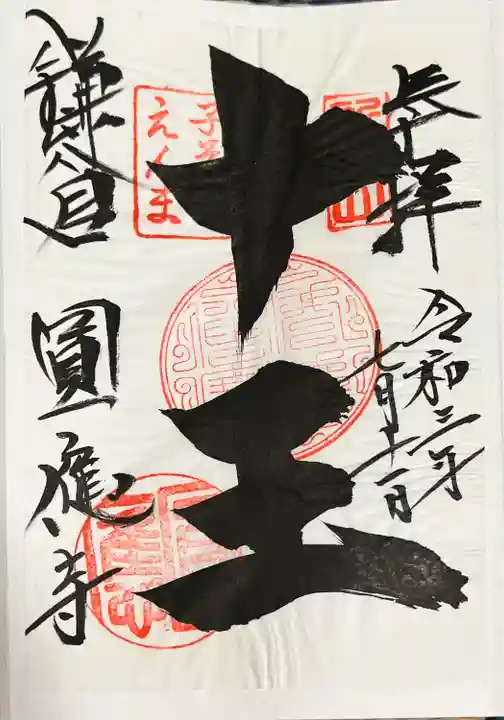 奉拝
令和二年
七月十一日
十王
子育
えんま
鎌倉
圓應寺